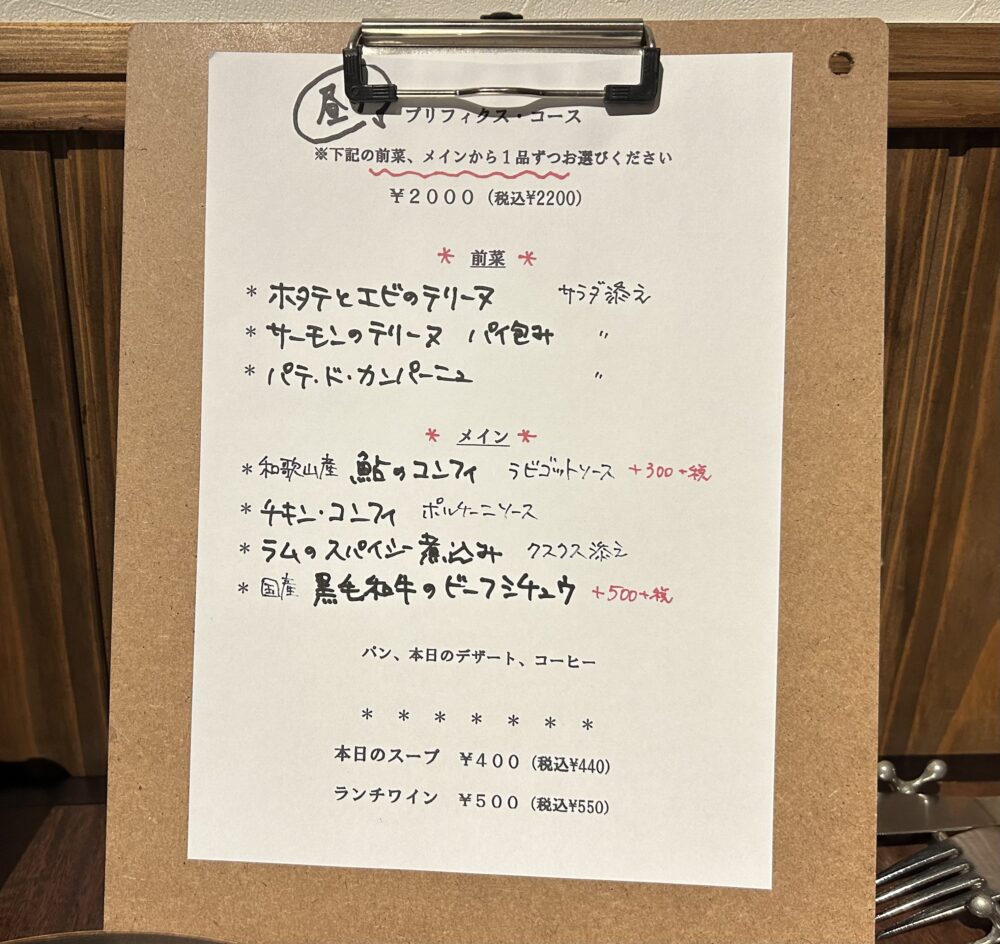 昼 プリフィクス・コース
※下記の前菜、メインから１品ずつお選びください
￥２０００ (税込¥2200)
* 前菜 *
* ホタテとエビのテリーヌ サラダ添え
* サーモンのテリーヌ パイ包み 〃
* パテ・ド・カンパーニュ 〃
* メイン *
* 和歌山産 鮎のコンフィ ラビゴットソース +300+税
* チキン・コンフィ ポルチーニソース
* ラムのスパイシー煮込み クスクス添え
* 国産 黒毛和牛のビーフシチュウ +500+税
パン、本日のデザート、コーヒー
* * * * * * *
本日のスープ ￥４００ (税込¥440)
ランチワイン ￥５００ (税込¥550)